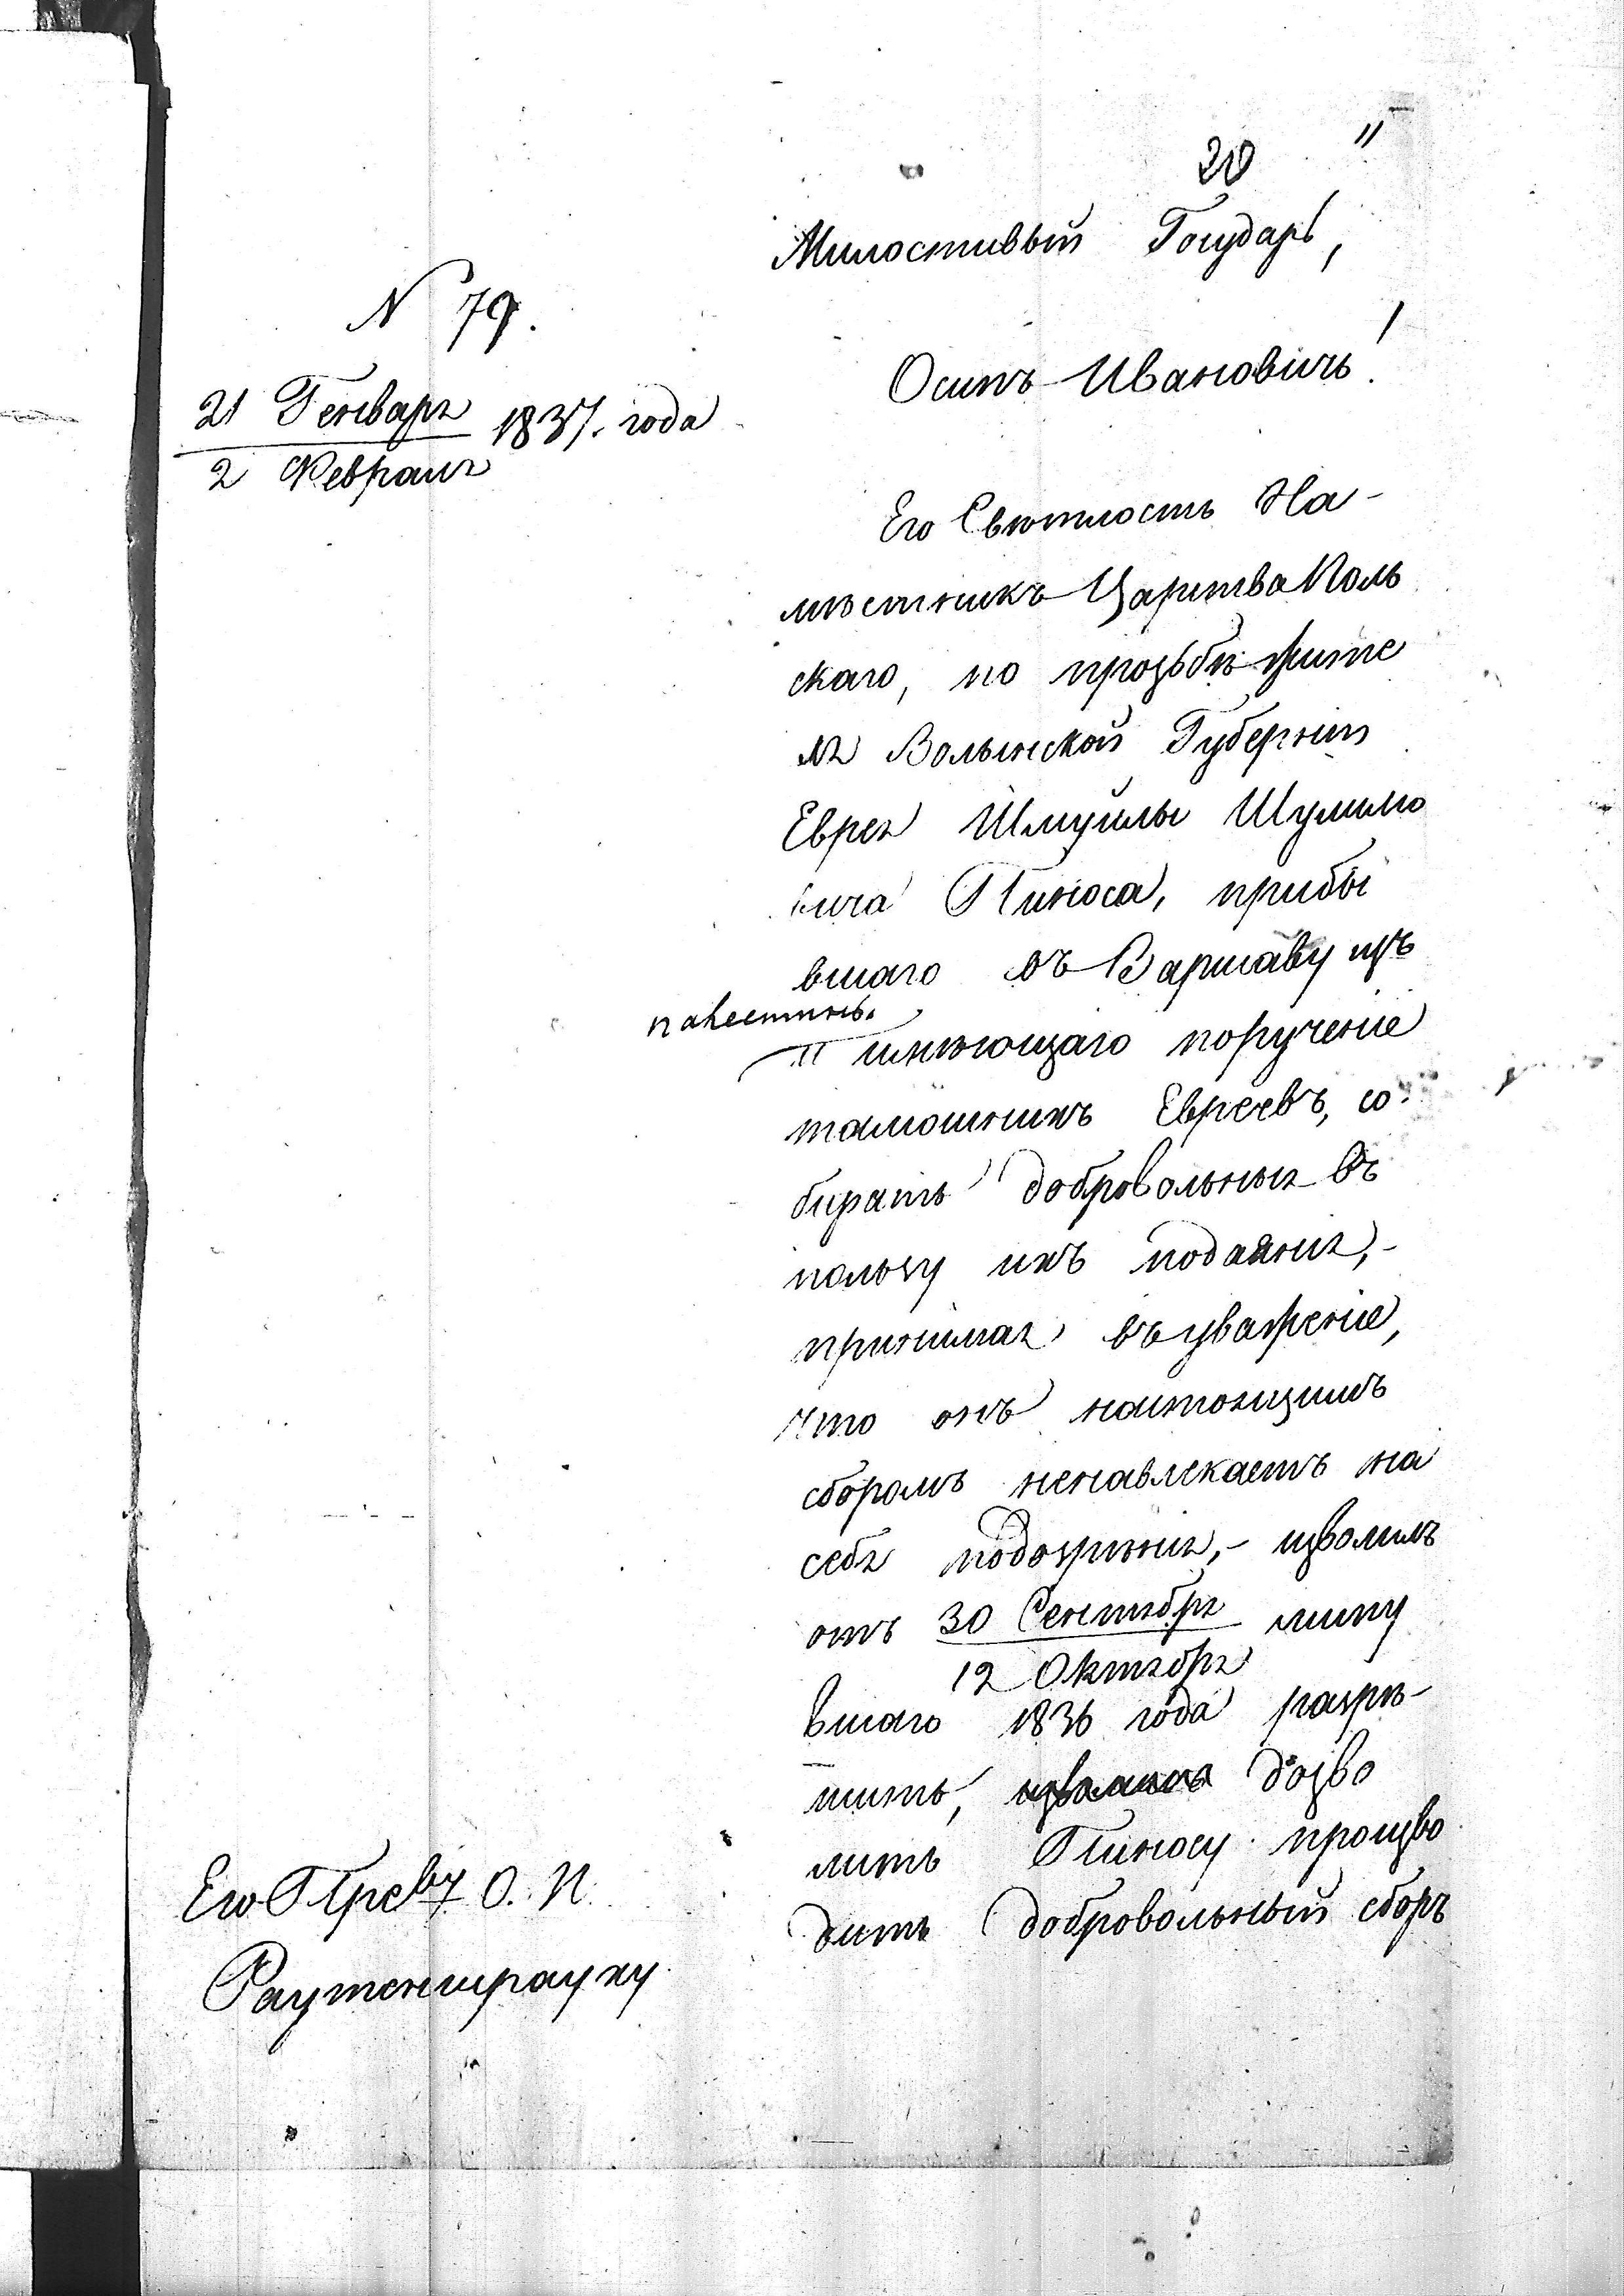 20
Милостивый Государь,
Осипъ Ивановичь!
N 79.
21 Генваря
2 Февраля
1837. года
Его Свѣтлость На-
мѣстникъ Царства Поль
скаго, по прозьбѣ жите
ля Волынской Губерніи
Еврея Шмуилы Шулимо
вича Пинюса, прибы
вшаго въ Варшаву изъ
палестины.
и имѣющаго порученіе
тамошнихъ Евреевъ, со-
бирать добровольныя въ
пользу ихъ подаянія,-
принимая въ уваженіе,
что онъ настоящимъ
сборомъ ненавлекаетъ на
себя подозрѣнія,- изволилъ
отъ 30 Сентября мину
12 Октября
вшаго 1836 года разрѣ-
шить, дозво
лить Пинюсу произво
дить добровольный сборъ
Его Прев-ву О. И.
Раутенштрауху